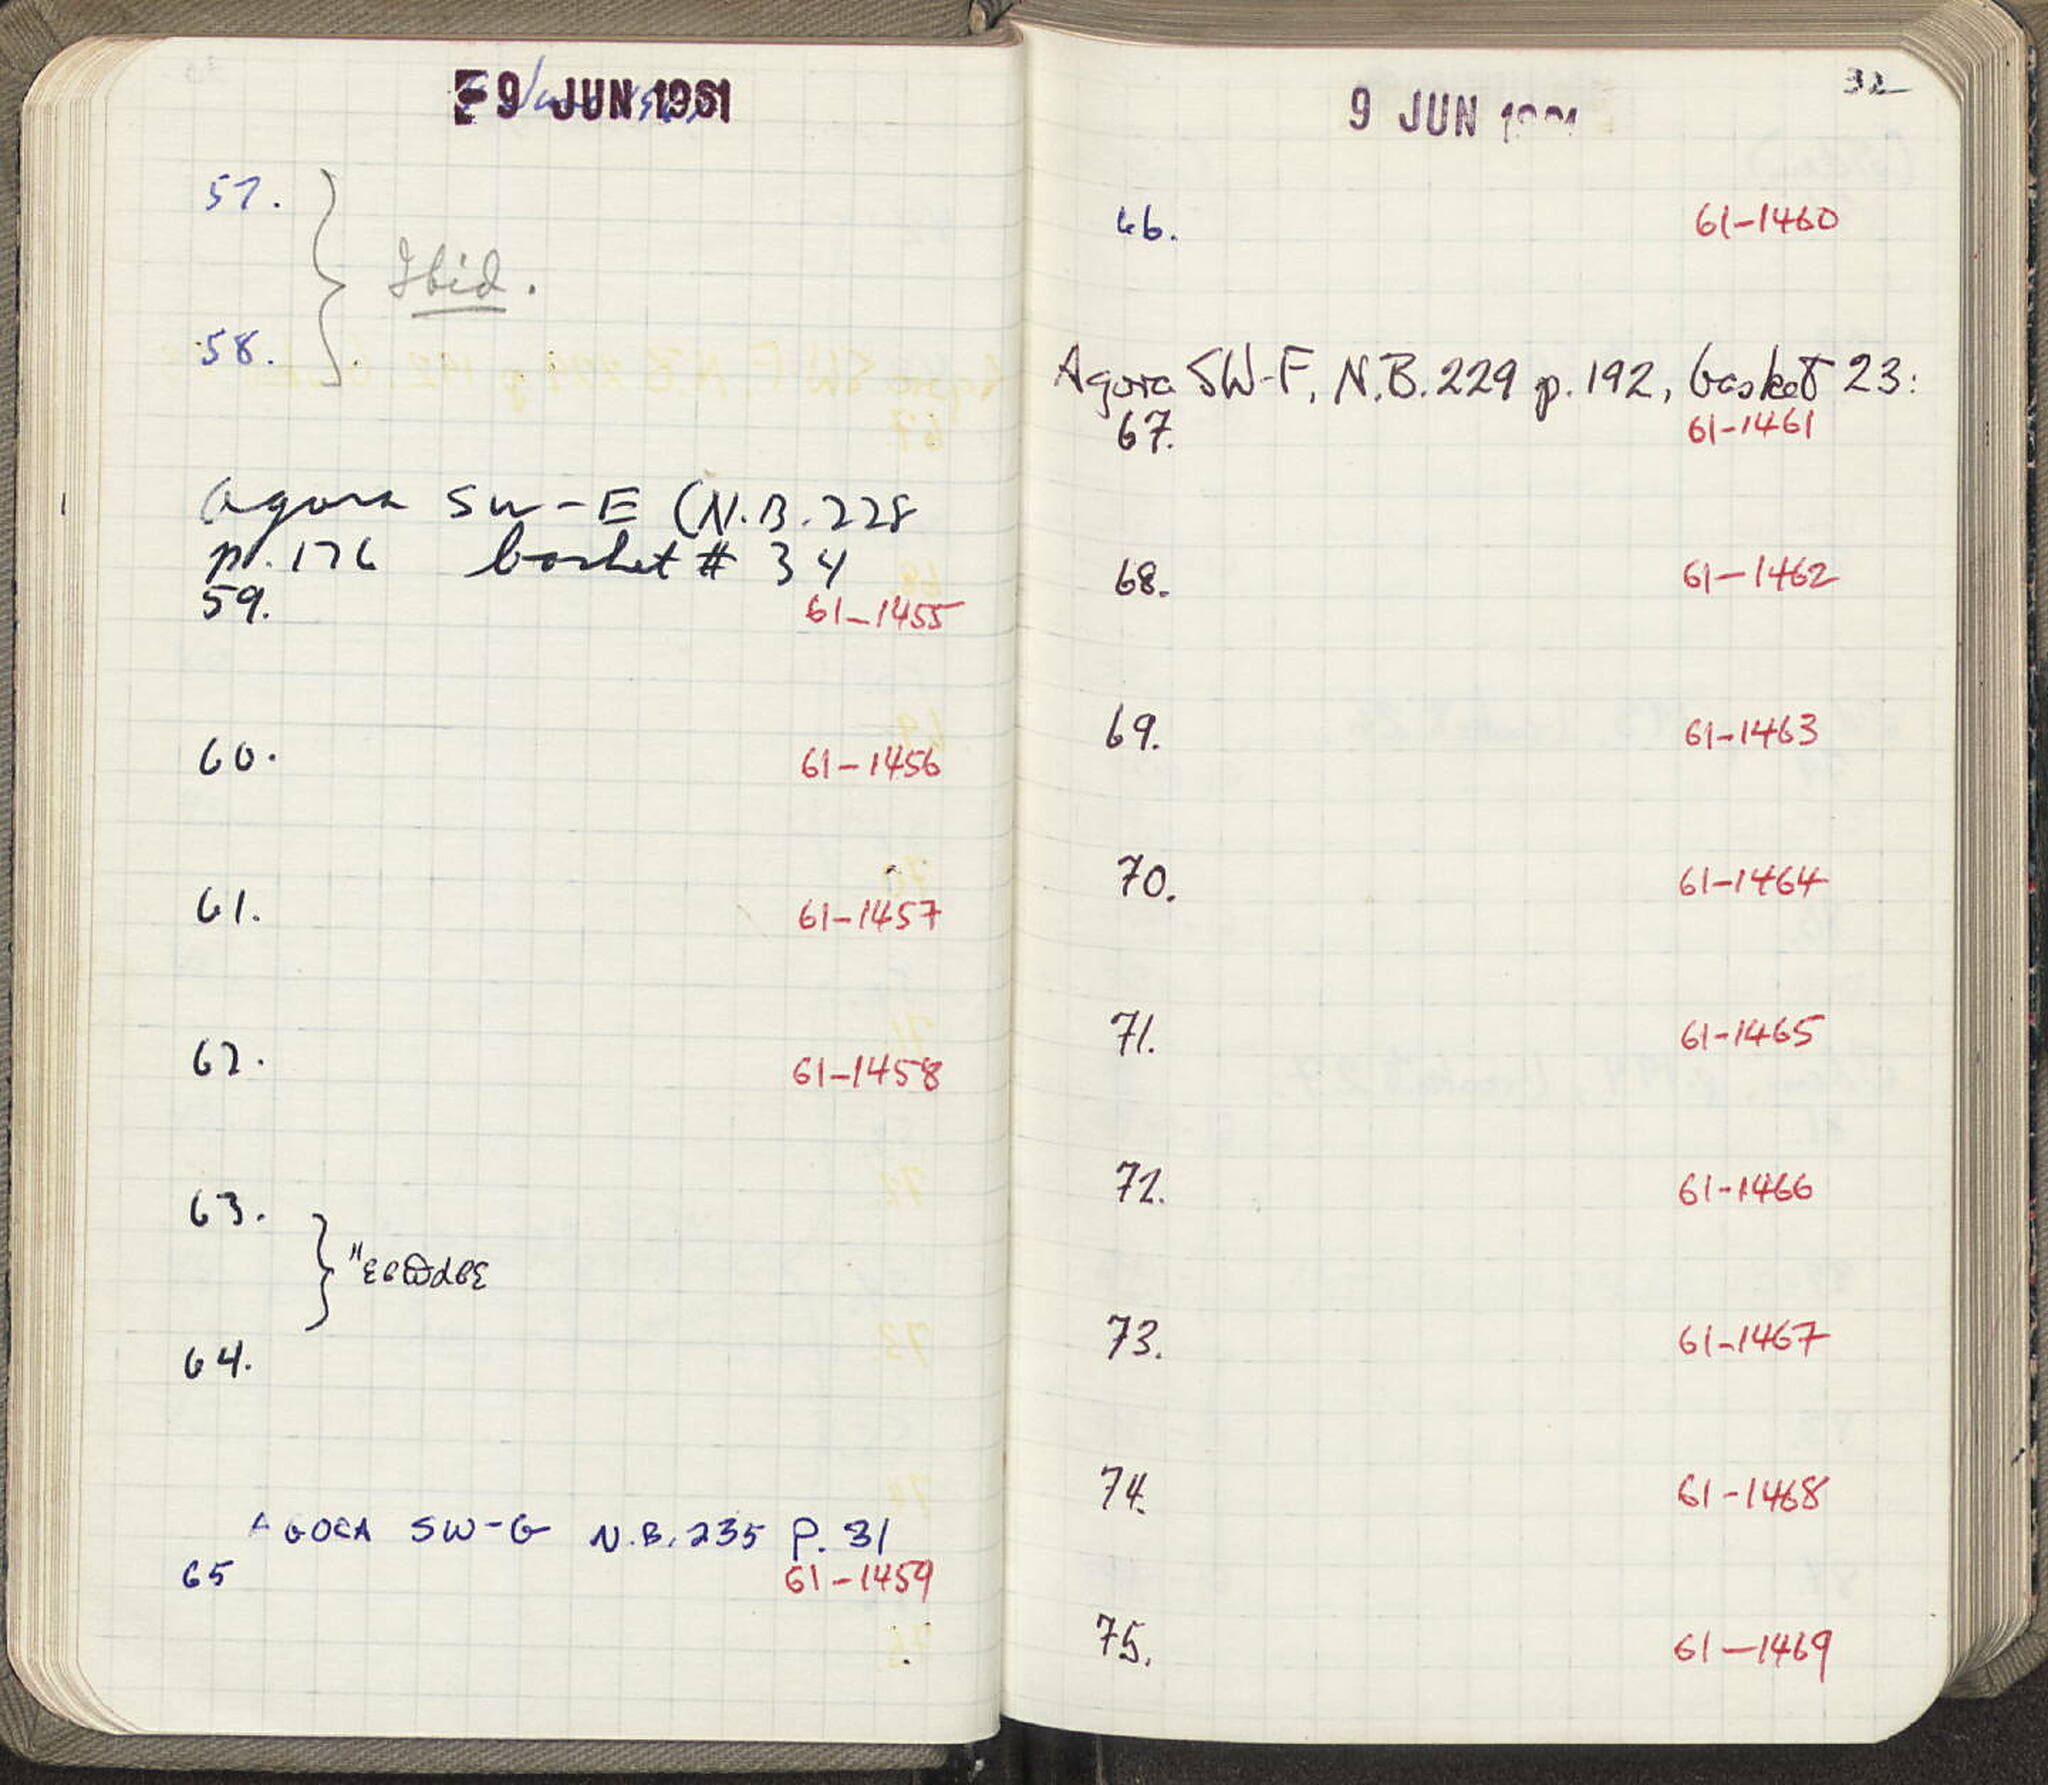 9 JUN 1961
57.
Ibid.
58.
Agora SW-E (N.B. 228
p. 176 basket # 34
59. 61-1455
60. 61-1456
61. 61-1457
62. 61-1458
63.
64.
AGORA SW-G N.B. 235 P. 31
65 61-1459
32
9 JUN 1961
66. 61-1460
Agora SW-F, N.B. 229 p. 192, basket 23:
67. 61-1461
68. 61-1462
69. 61-1463
70. 61-1464
71. 61-1465
72. 61-1466
73. 61-1467
74. 61-1468
75. 61-1469